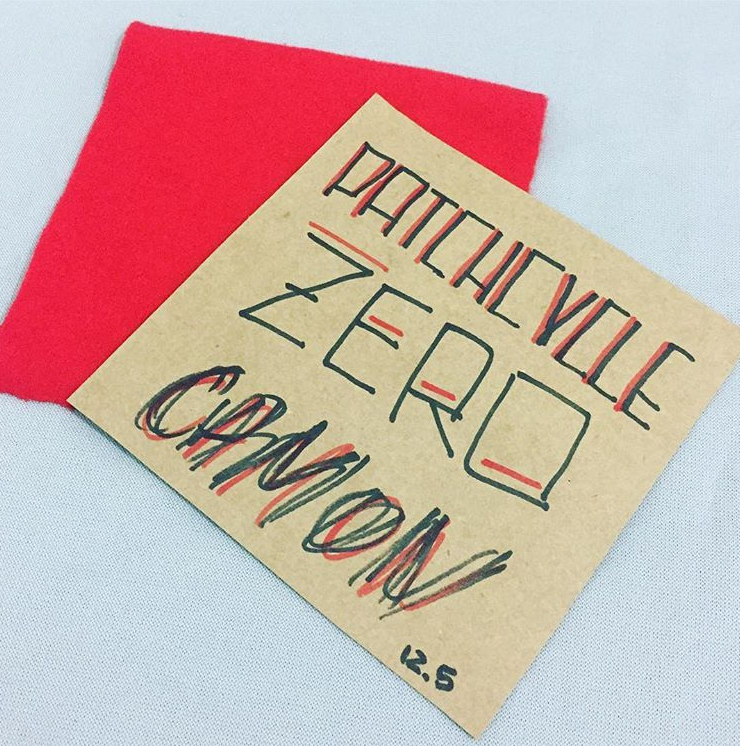 PATCHCYCLE
ZERO
CANYON
12.5